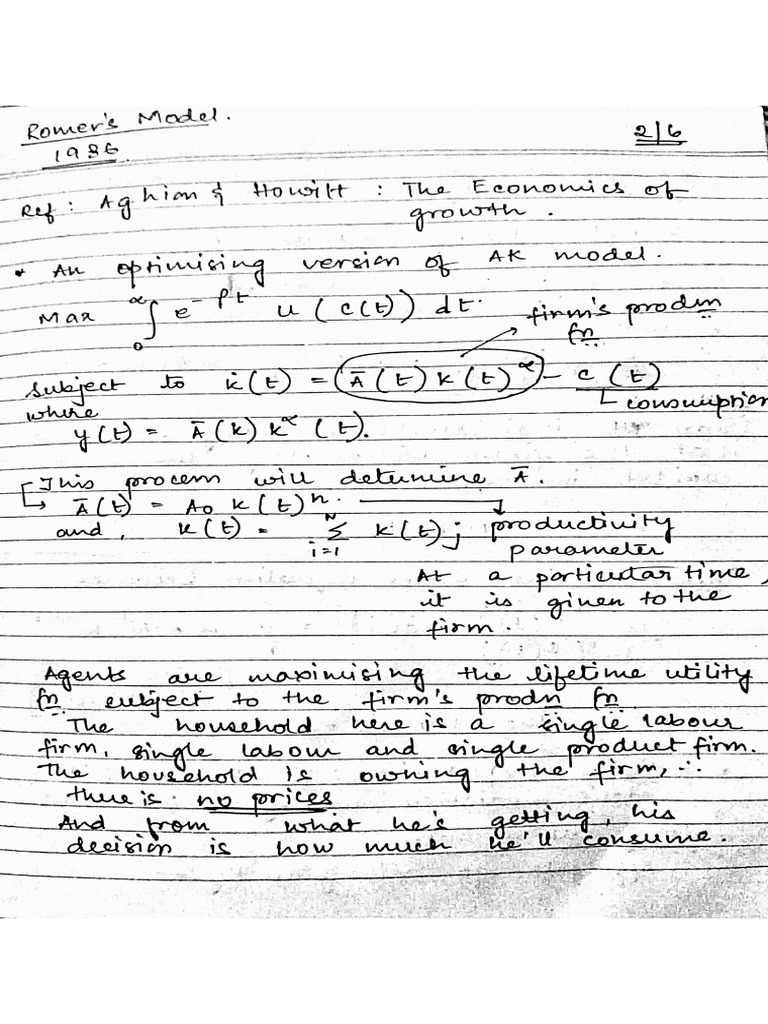 Romer's Model.
1986.
2/6
Ref: Aghion & Howitt : The Economics of
growth.
* An optimising version of AK model.
Max ∫₀^∝ e^{-ρt} u(c(t)) dt.
firm's prodn
fn
subject to k̇(t) = Ā(t) k(t)^∝ - c(t)
where
consumption
y(t) = Ā(k) k^∝ (t).
[This process will determine Ā.
↳ Ā(t) = A₀ K(t)^n.
and, K(t) = Σ_{i=1}^{N} k(t)j
productivity
parameter
At a particular time,
it is given to the
firm.
Agents are maximising the lifetime utility
fn subject to the firm's prodn fn
The household here is a single labour
firm, single labour and single product firm.
The household is owning the firm, ∴
there is no prices
And from what he's getting, his
decision is how much he'll consume.